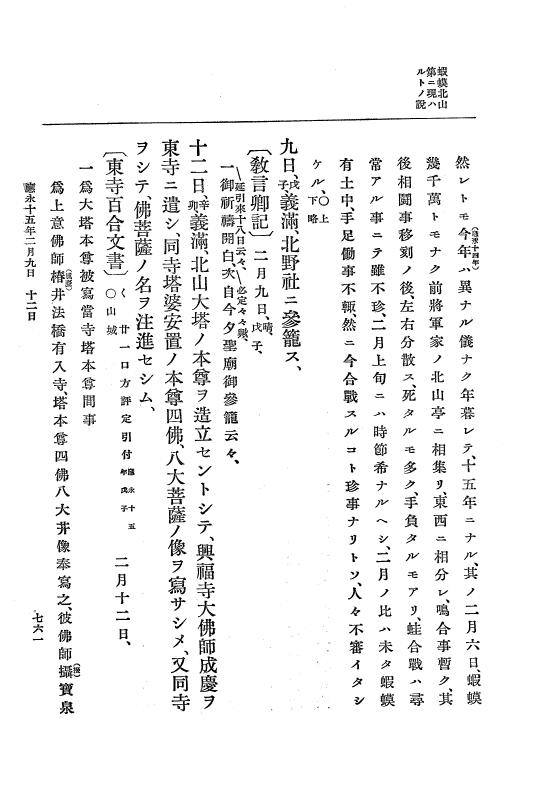 蝦蟆北山
第ニ現ハ
ルトノ説
然レトモ今年(應永十四年)ハ異ナル儀ナク年暮レテ、十五年ニナル、其ノ二月六日、蝦蟆
幾千萬トモナク前將軍家ノ北山亭ニ相集リ、東西ニ相分レ、鳴合事暫ク、其
後相鬪事移刻ノ後、左右分散ス、死タルモ多ク、手負タルモアリ、蛙合戰ハ尋
常アル事ニテ雖不珍、二月上旬ニハ時節希ナルヘシ、二月ノ比ハ未タ蝦蟆
有土中、手足働事不輙、然ニ今合戰スルコト珍事ナリトソ、人々不審イタシ
ケル、〇上下略
九日、戊子、義滿、北野社ニ參籠ス、
〔敎言卿記〕 二月九日、晴、戊子、
延引來十八日云々、必定々々歟、
一御祈禱開白、夾自今夕聖廟御參籠云々、
十二日、辛卯、義滿、北山大塔ノ本尊ヲ造立セントシテ、興福寺大佛師成慶ヲ
東寺ニ遣シ、同寺塔婆安置ノ本尊四佛、八大菩薩ノ像ヲ寫サシメ、又同寺
ヲシテ、佛菩薩ノ名ヲ注進セシム、
〔東寺百合文書〕 〇山城 く 廿一口方評定引付 應永十五年戊子 二月十二日、
一爲大塔本尊被寫當寺塔本尊間事
爲上意佛師椿井(成慶)法橋有入寺、塔本尊四佛八大井像奉寫之、彼佛師攝(授)寶泉
應永十五年二月九日 十二日
七六一